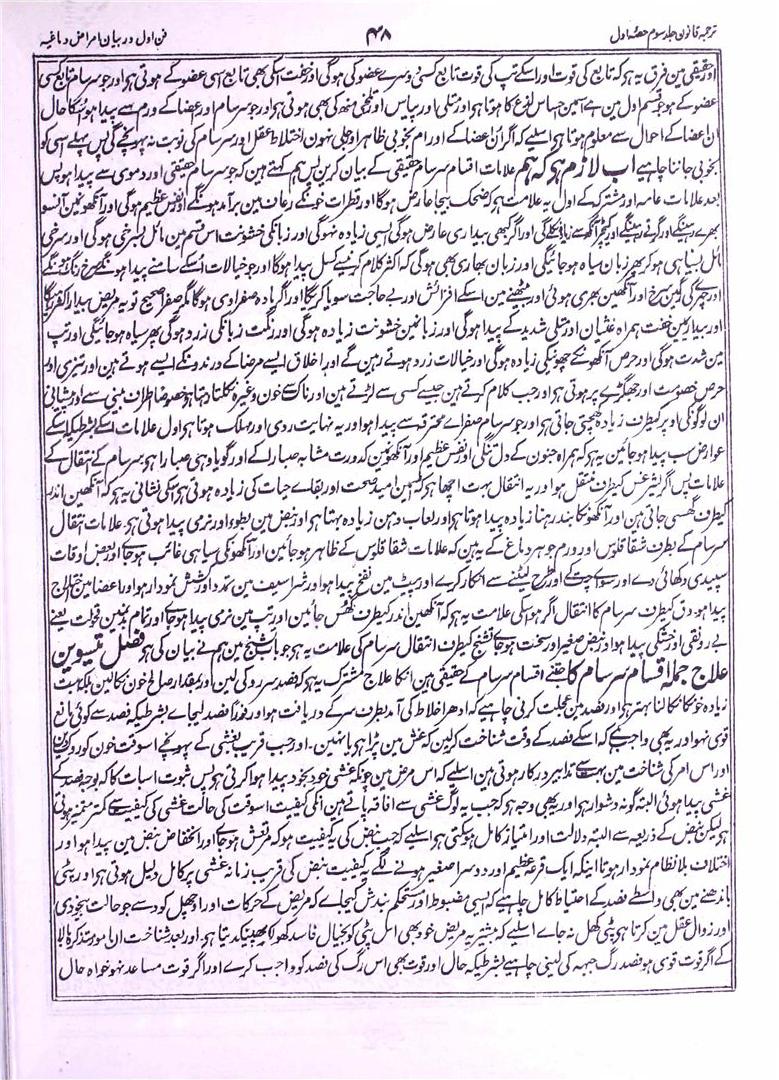 ترجمہ قانون جلد سوم حصہ اول ۴۸ فن اول در بیان امراض دماغیہ
اور حقیقی مین فرق یہ ہو کہ تابع کی قوت اور اسکے تپ کی قوت تابع کسی دوسرے عضو کی ہوگی اور خفت اسکی بھی تابع اسی عضو کے ہوتی ہو اور جو سرسام تابع کسی
عضو کے ہو جو قسم اول مین ہے اسمین احساس لذع کا ہوتا ہو اور متلی اور پیاس اور تلخی منھ کی بھی ہوتی ہو اور جو سرسام اور اعضا کے ورم سے پیدا ہو اسکا حال
ان اعضا کے احوال سے معلوم ہوتا ہو اسلیے کہ اگر ان اعضا کے اورام بخوبی ظاہر اور جلی نہون اختلاط عقل اور سرسام کی نوبت نہ پہونچے گی پس پہلے اسی کو
بخوبی جاننا چاہیے اب لازم ہو کہ ہم علامات اقسام سرسام حقیقی کے بیان کرین پس ہم کہتے ہین کہ جو سرسام حقیقی اور دموی سے پیدا ہو پس
بعد علامات عامہ اور مشترکہ کے اول یہ علامت ہو کہ ضحک بیجا عارض ہوگا اور قطرات خونکے رعاف مین برآمد ہونگے اور نفس عظیم ہوگی اور آنکھونمین آنسو
بھرے رہینگے اور گرتے رہینگے اور کیچڑ آنکھ سے زیادہ نکلے گی اور اگر کبھی بیداری عارض ہوگی ایسی زیادہ نہوگی اور زبانکی خشونت اس قسم مین مائل بسرخی ہوگی اور سرخی
مائل بسیاہی ہو کر پھر زبان سیاہ ہو جائیگی اور زبان بھاری بھی ہوگی کہ اکثر کلام کرنیسے کسل پیدا ہوگا اور جو خیالات اسکے سامنے پیدا ہونگے سرخ رنگ ہونگے
اور چہرے کی رگین سرخ اور آنکھین بھری ہوئی اور بیٹھنے مین اسکے افزائش اور بے حاجت سویا کریگا اور اگر مادہ صفراوی ہوگا مگر صفرا صحیح تو یہ مریض بیدار اکثر رہیگا
اور بیداری مین خفت ہمراہ غثیان اور متلی شدید کے پیدا ہوگی اور زبانمین خشونت زیادہ ہوگی اور رنگت زبانکی زرد ہوگی پھر سیاہ ہو جائیگی اور تپ
مین شدت ہوگی اور حرص آنکھونکے چھونکی زیادہ ہوگی اور خیالات زرد ہوتے رہین گے اور اخلاق ایسے مرضا کے درندونکے ایسے ہوتے ہین اور تیزی اور
حرص خصومت اور جھگڑے پر ہوتی ہو اور جب کلام کرتے ہین جیسے کسی سے لڑتے ہین اور ناک سے خون وغیرہ نکلتا رہتا ہو خصوصا اطراف بینی سے اور پیشانی
ان لوگونکی اوپر کیطرف زیادہ کھنچتی جاتی ہو اور جو سرسام صفراے محترقہ سے پیدا ہو اور یہ نہایت ردی اور مہلک ہوتا ہو اول علامات اسکے بشرطیکہ اسکے
عوارض سب پیدا ہو جائین یہ ہو کہ ہمراہ جنون کے دل تنگی اور نفس عظیم اور آنکھونمین کدورت مشابہ صبارا کے اور گویا وہی صبارا ہو سرسام کے انتقال کے
علامات پس اگر لیثرغس کیطرف منتقل ہو اور یہ انتقال بہت اچھا ہو کہ اسمین امید صحت اور بقاے حیات کی زیادہ ہوتی ہو اسکی نشانی یہ ہو کہ آنکھین اندر
کیطرف گھسی جاتی ہین اور آنکھونکا بند رہنا زیادہ پیدا ہوتا ہو اور لعاب دہن زیادہ بہتا ہو اور نبض مین بطوء اور نرمی پیدا ہوتی ہو علامات انتقال
سرسام کے بطرف شقاقلوس اور ورم جوہر دماغ کے یہ ہین کہ علامات شقاقلوس کے ظاہر ہو جائین اور آنکھونکی سیاہی غائب ہو جائے اور بعض اوقات
سپیدی دکھائی دے اور سواے چت کے اور طرح لیٹنے سے انکار کرے اور پیٹ مین نفخ پیدا ہو اور شراسیف مین تمدد اور کشش نمودار ہو اور اعضا مین اختلاج
پیدا ہو دق کیطرف سرسام کا انتقال اگر ہو اسکی علامت یہ ہو کہ آنکھین اندر کیطرف گھس جائین اور تپ مین نرمی پیدا ہو جائے اور تمام بدنمین قحولت یعنے
بے رونقی اور خشکی پیدا ہو اور نبض صغیر اور سخت ہو جائے تشنج کیطرف انتقال سرسام کی علامت یہ ہو جو باب تشنج مین ہم نے بیان کی ہو فصل تیسوین
علاج جملہ اقسام سرسام کا جتنے اقسام سرسام کے حقیقی ہین انکا علاج مشترک یہ ہو کہ فصد سررو کی لین اور بمقدار صالح خون نکالین بلکہ بہت
زیادہ خونکا نکالنا بہتر ہو اور فصد مین عجلت کرنی چاہیے کہ ادھر اخلاط کی آمد بطرف سر کے دریافت ہو اور فورا فصد لیجاے بشرطیکہ فصد سے کوئی مانع
قوی نہو اور یہ بھی واجب ہے کہ اسکے فصد کے وقت شناخت کر لین کہ غش مین پڑا ہو یا نہین۔ اور جب قریب بغشی کے پہونچے اسوقت خون کو روک لین
اور اس امر کی شناخت مین بہت سے تدابیر درکار ہوتی ہین اسلیے کہ اس مرض مین چونکہ غشی خود بخود پیدا ہوا کرتی ہو پس ثبوت اسبات کا کہ بوجہ فصد کے
غشی پیدا ہوئی البتہ گونہ دشوار ہو اور یہ بھی وجہ ہو کہ جب یہ لوگ غشی سے افاقہ پاتے ہین انکی کیفیت اسوقت کی حالت غشی کی کیفیت سے کمتر متمیز ہوتی
ہو لیکن نبض کے ذریعہ سے البتہ دلالت اور امتیاز کامل ہو سکتی ہو اسلیے کہ جب نبض کی یہ کیفیت ہو کہ مرتعش ہو جائے اور انخفاض نبض مین پیدا ہو اور
اختلاف بلا نظام نمودار ہوتا اینکہ ایک قرعہ عظیم اور دوسرا صغیر ہونے لگے یہ کیفیت نبض کی قریب زمانہ غشی پر کامل دلیل ہوتی ہو اور پٹی
باندھنے مین بھی واسطے فصد کے احتیاط کامل چاہیے کہ ایسی مضبوط اور مستحکم بندش کیجاے کہ مریض کے حرکات اور اچھل کود سے جو حالت بیخودی
اور زوال عقل مین کرتا ہو پٹی کھل نہ جاے اسلیے کہ بیشتر یہ مریض خود بھی اس پٹی کو بخیال فاسد کھولکر پھینکدیتا ہو۔ اور بعد شناخت ان امور متذکرہ بالا
کے اگر قوت قوی ہو فصد رگ جبہہ کی لینی چاہیے بشرطیکہ حال اور قوت بھی اس رگ کی فصد کو واجب کرے اور اگر قوت مساعد نہو خواہ حال